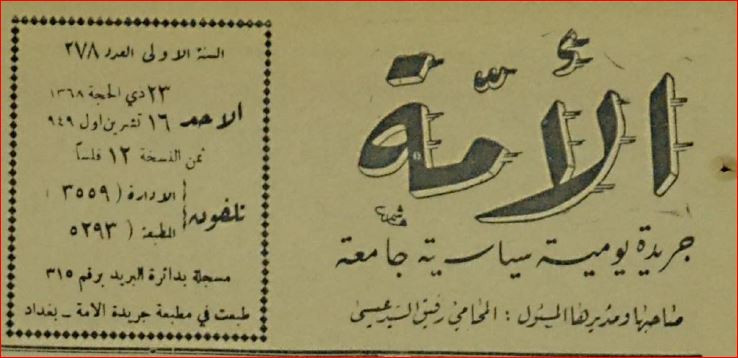 الأمّة
جريدة يومية سياسية جامعة
صاحبها ومديرها المسئول : المحامي رفيق السيد عيسى
السنة الاولى العدد ٢٧٨
٢٣ ذي الحجة ١٣٦٨
الاحد
١٦ تشرين اول ٩٤٩
ثمن النسخة ١٢ فلساً
تلفون
الادارة ( ٣٥٥٩ )
المطبعة ( ٥٢٩٣
مسجلة بدائرة البريد برقم ٣١٥
طبعت في مطبعة جريدة الامة - بغداد